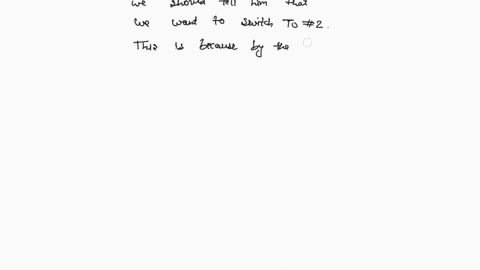 we should tell him that
we want to switch To #2.
This is because by the